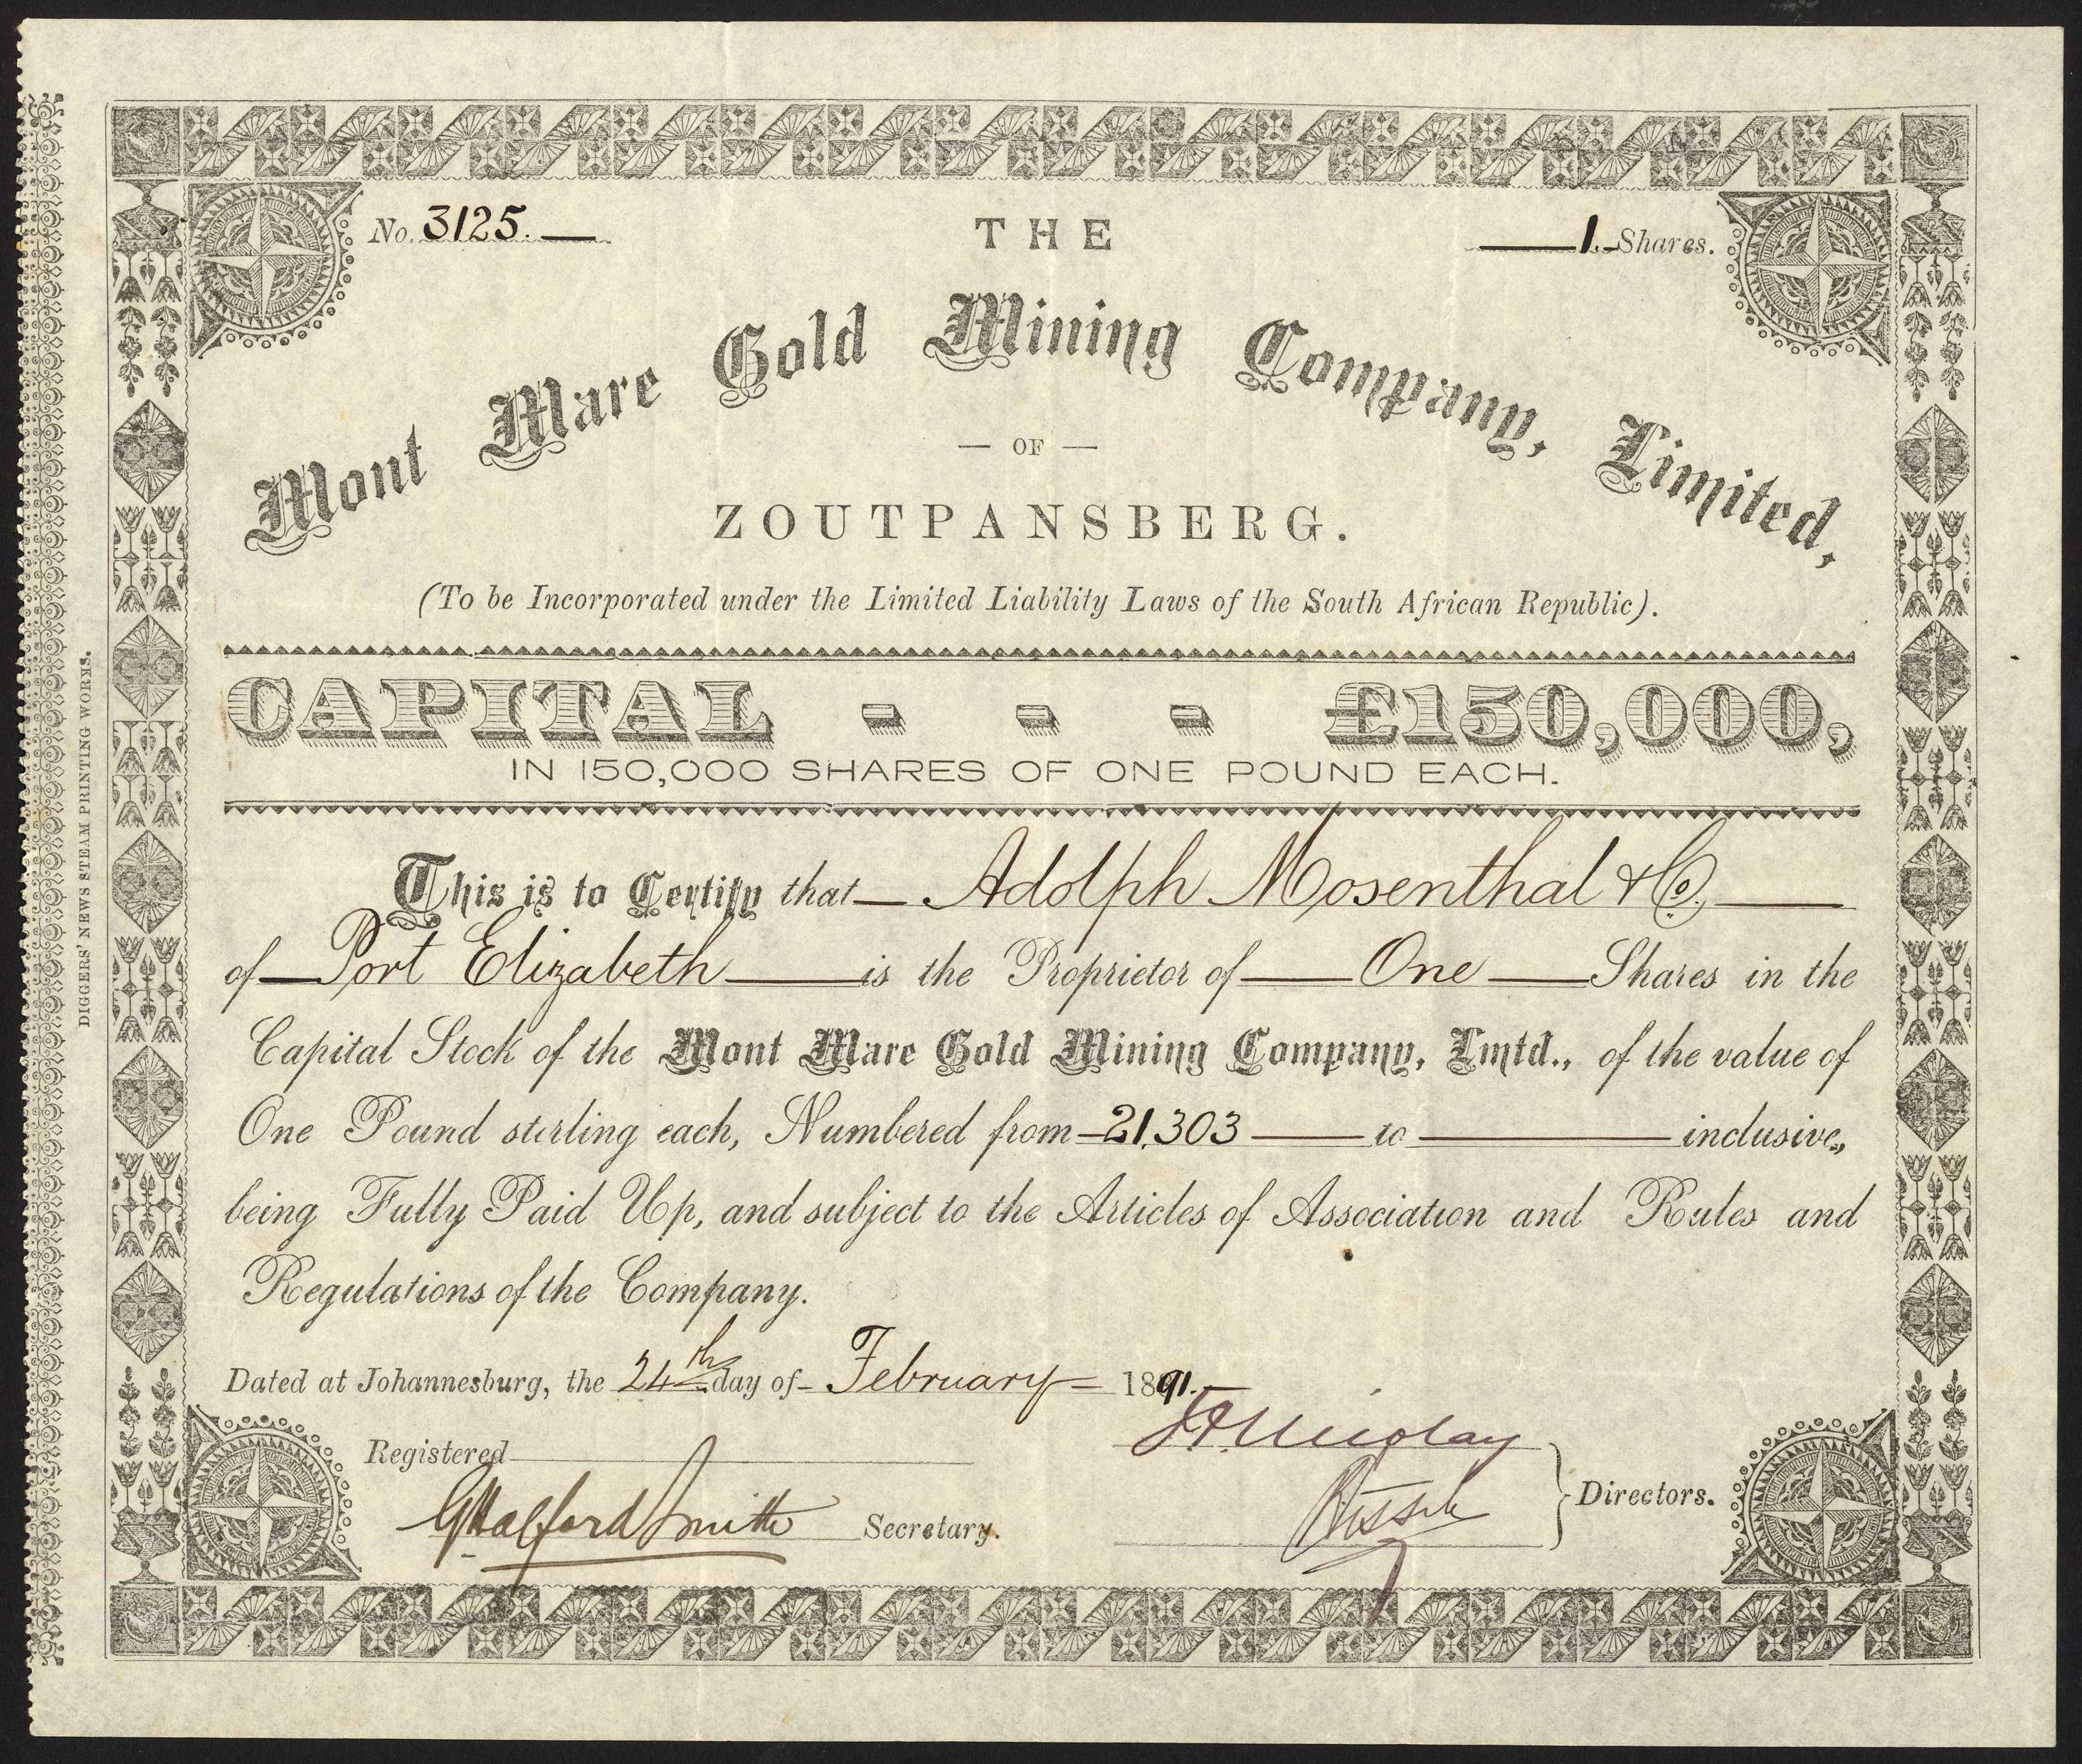 No. 3125.
THE
1. Shares.
Mont Mare Gold Mining Company, Limited,
— OF —
ZOUTPANSBERG.
(To be Incorporated under the Limited Liability Laws of the South African Republic).
CAPITAL - - - £150,000,
IN 150,000 SHARES OF ONE POUND EACH.
This is to Certify that Adolph Mosenthal & Co.
of Port Elizabeth is the Proprietor of One Shares in the
Capital Stock of the Mont Mare Gold Mining Company, Lmtd., of the value of
One Pound sterling each, Numbered from 21,303 to inclusive,
being Fully Paid Up, and subject to the Articles of Association and Rules and
Regulations of the Company.
Dated at Johannesburg, the 24th day of February 1891.
Registered
Halford Smith Secretary.
Directors.
DIGGERS' NEWS STEAM PRINTING WORKS.